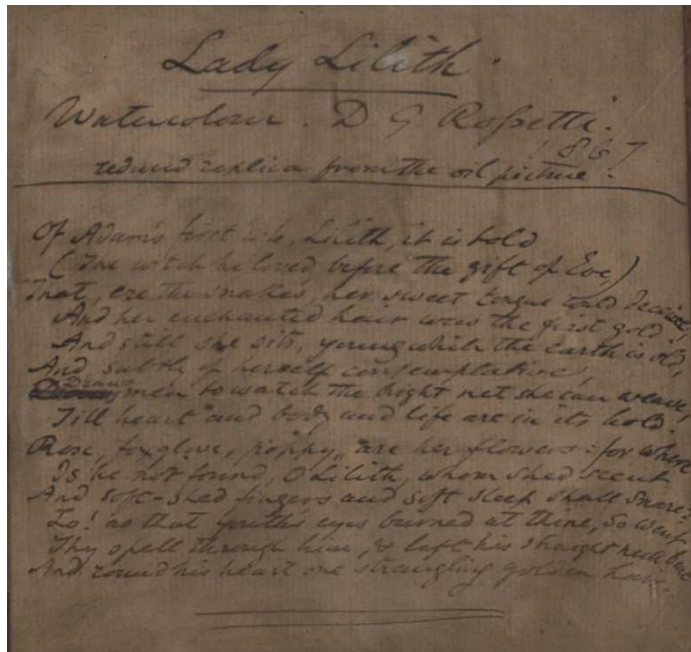 Lady Lilith.
Watercolour. D G Rossetti.
1867
reduced replica from the oil picture:
Of Adam's first wife, Lilith, it is told
(The witch he loved before the gift of Eve,)
That, ere the snake's, her sweet tongue could deceive,
And her enchanted hair was the first gold.
And still she sits, young while the earth is old,
And, subtly of herself contemplative,
Draws men to watch the bright net she can weave,
Till heart and body and life are in its hold.
Rose, foxglove, poppy, are her flowers: for where
Is he not found, O Lilith, whom shed scent
And soft-shed fingers and soft sleep shall snare?
Lo! as that youth's eyes burned at thine, so went
Thy spell through him, & left his straight neck bent
And round his heart one strangling golden hair.